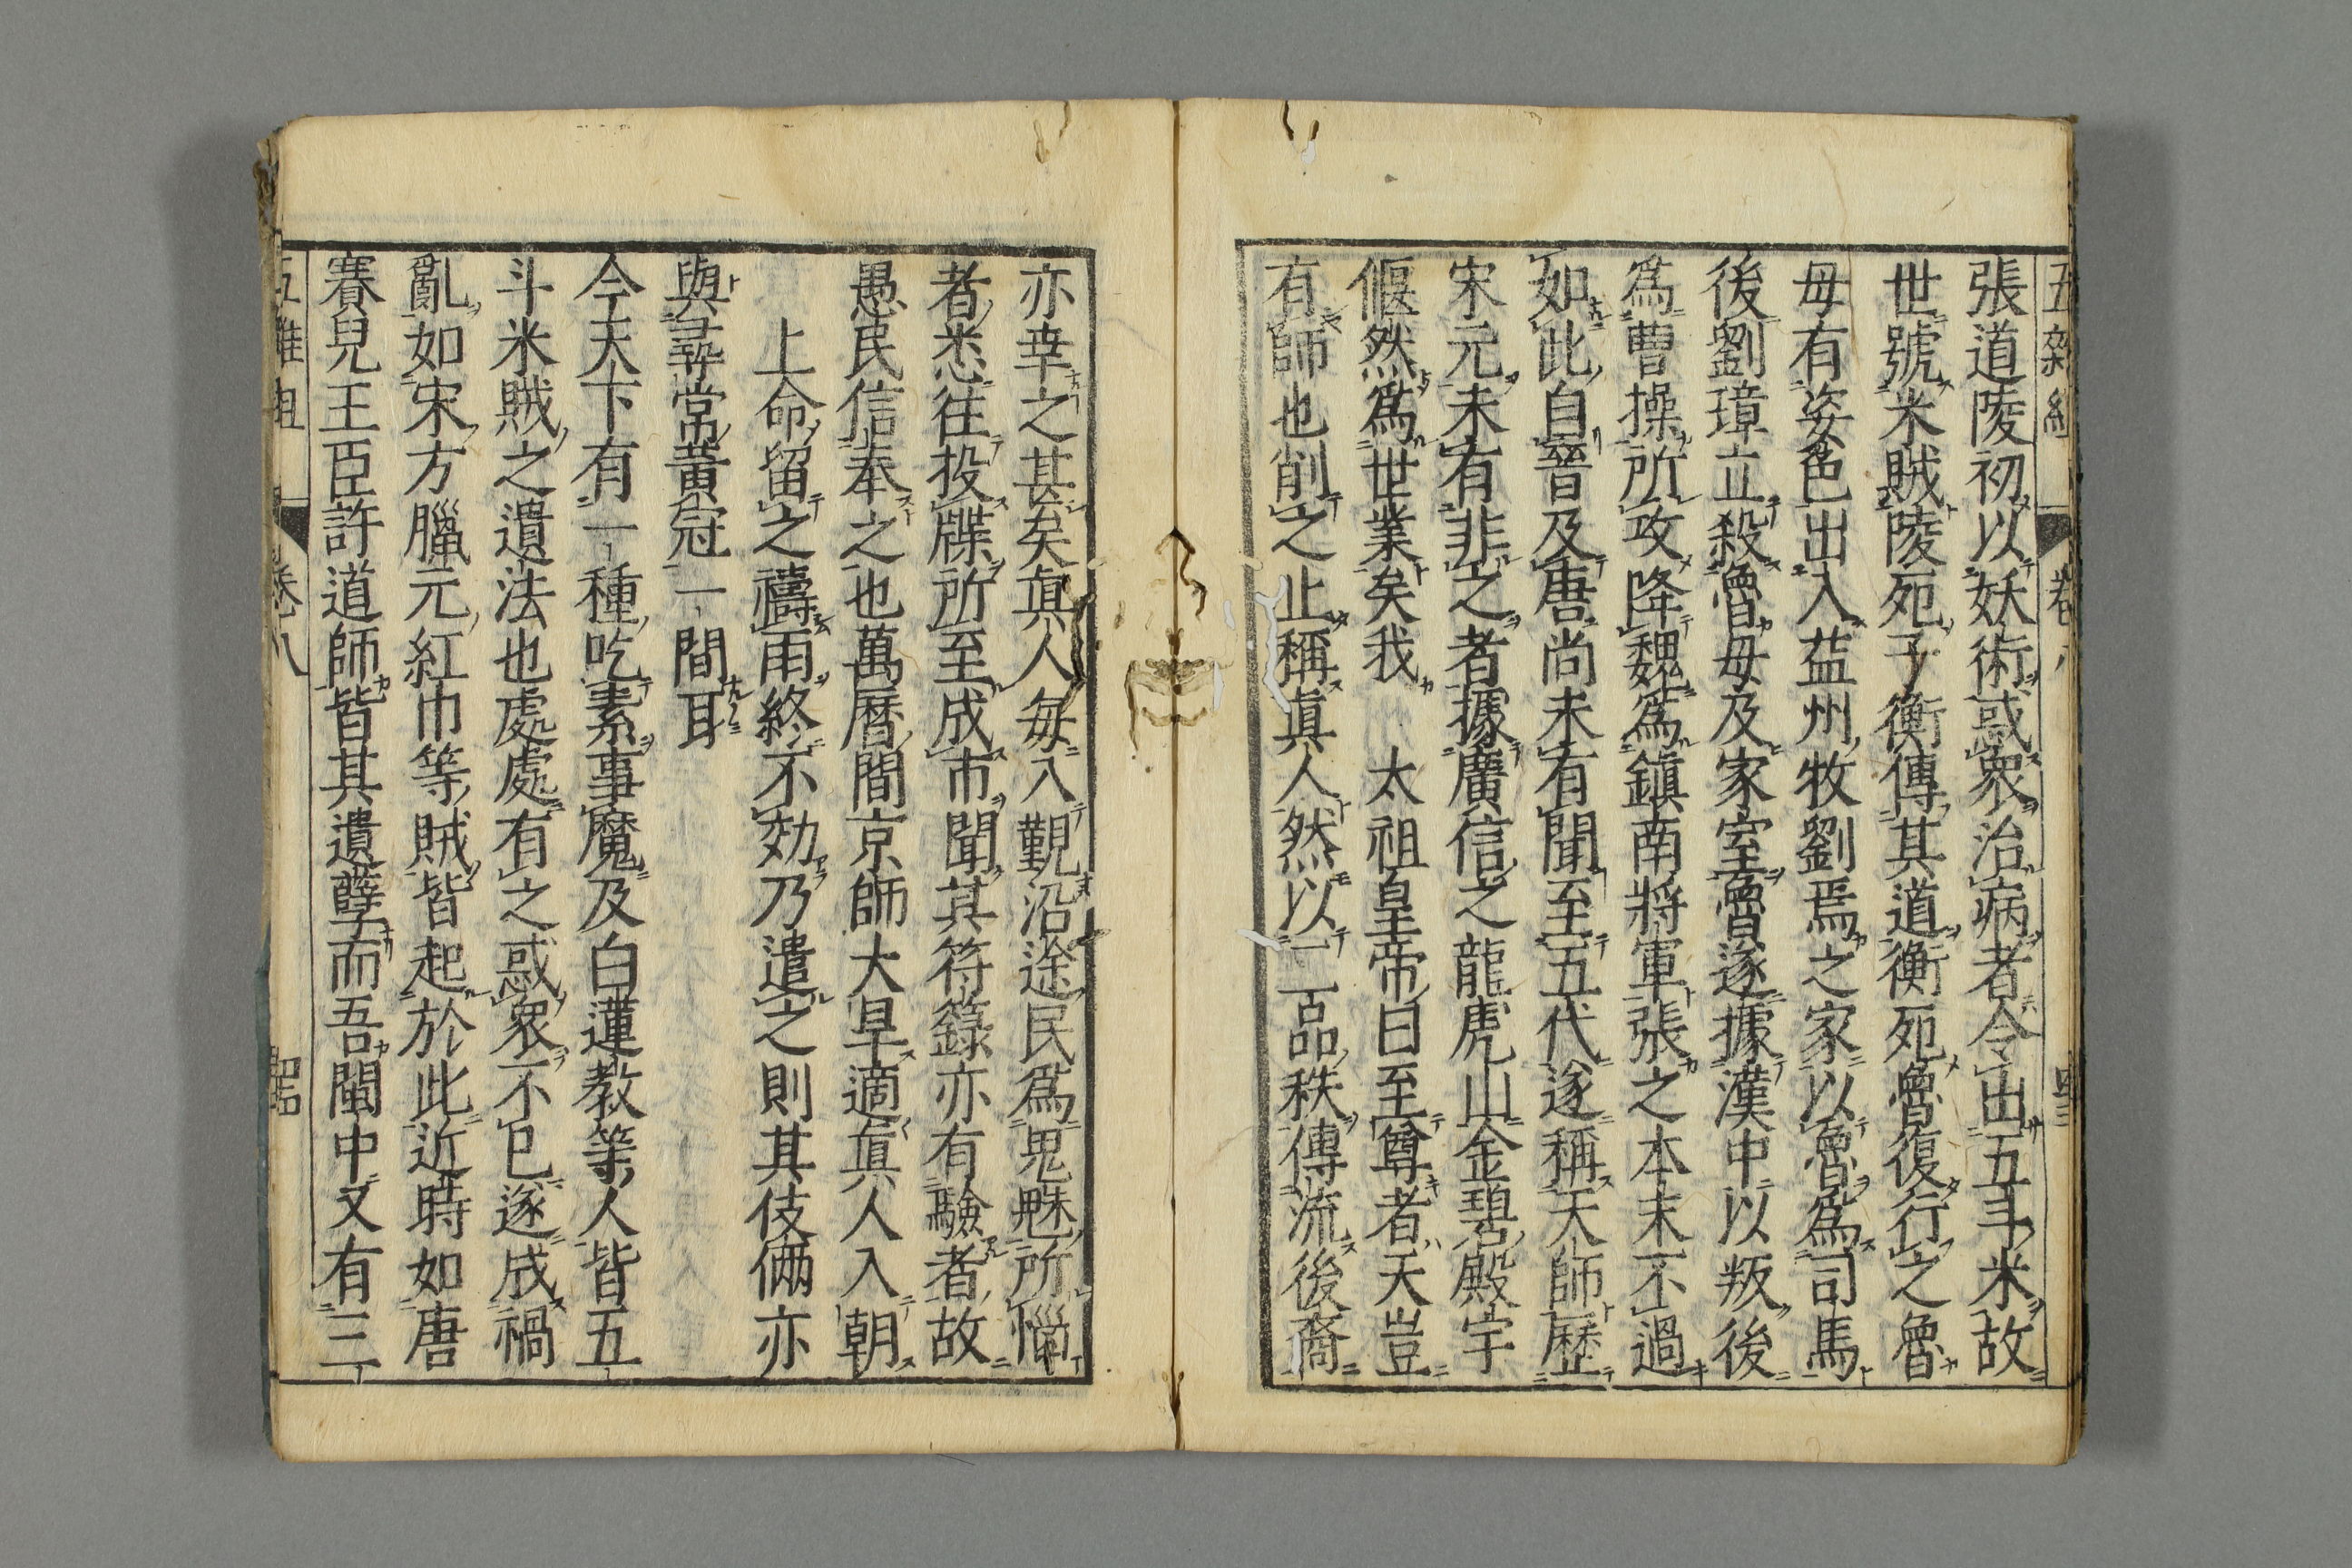 五雜組 卷八
張道陵初以妖術惑衆治病者令出五斗米故
世號米賊陵死子衡傳其道衡死魯復行之魯
母有姿色出入益州牧劉焉之家以魯爲司馬
後劉璋立殺魯母及家室魯遂據漢中以叛後
爲曹操所攻降魏爲鎮南將軍張之本末不過
如此自晉及唐尚未有聞至五代遂稱天師歷
宋元未有非之者據廣信之龍虎山金碧殿宇
偃然爲世業矣我 太祖皇帝曰至尊者天豈
有師也削之止稱眞人然以二品秩傳流後裔
亦幸之甚矣眞人每入覲沿途民爲鬼魅所惱
者悉往投牒所至成市聞其符籙亦有驗者故
愚民信奉之也萬曆間京師大旱適眞人入朝
上命留之禱雨終不効乃遣之則其伎倆亦
與尋常黃冠一間耳
今天下有一種吃素事魔及白蓮教等人皆五
斗米賊之遺法也處處有之惑衆不已遂成禍
亂如宋方臘元紅巾等賊皆起於此近時如唐
賽兒王臣許道師皆其遺孽而吾閩中又有三一
五雜組 卷八